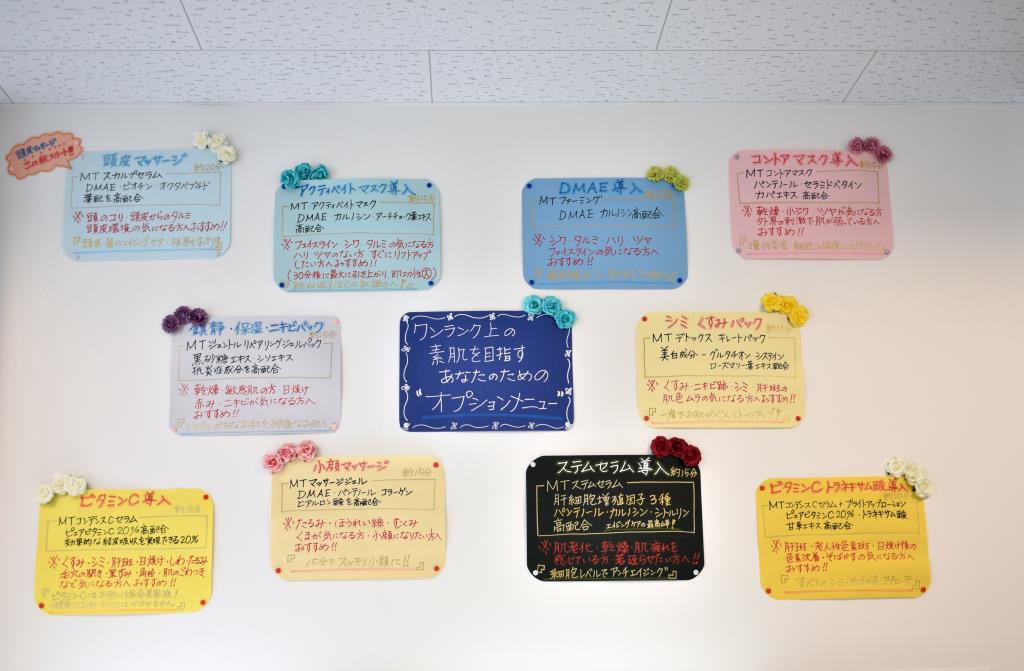 頭皮マッサージ
この秋スタート!!
頭皮マッサージ
約20分
MT スカルプセラム
DMAE・ビオチン・オクタペプチド
葉酸を高配合
※ 頭のコリ・頭皮からのタルミ
頭皮環境の気になる方へおすすめ!!
アクティベイトマスク導入
約15分
MT アクティベイトマスク
DMAE カルノシン・アーチチョーク葉エキス
高配合
※ フェイスライン・シワ・タルミの気になる方
ハリ・ツヤのない方 すぐにリフトアップ
したい方へおすすめ!!
(30分後に最大に引き上がり、即効性大)
DMAE 導入
約15分
MT ファーミング
DMAE カルノシン高配合
※ シワ・タルミ・ハリ・ツヤ
フェイスラインの気になる方へ
おすすめ!!
コントア マスク導入
約15分
MT コントアマスク
パンテノール・セラミドベタイン
カバエキス 高配合
※ 乾燥・小ジワ・ツヤが気になる方
外界の刺激で肌が弱っている方へ
おすすめ!!
鎮静・保湿・ニキビパック
約15分
MT ジェントル リペアリングジェルパック
黒砂糖エキス・シソエキス
抗炎症成分を高配合
※ 乾燥・敏感肌の方・日焼け
赤み・ニキビが気になる方へ
おすすめ!!
ワンランク上の
素肌を目指す
あなたのための
"オプションメニュー"
シミ くすみパック
約15分
MT デトックス キレートパック
美白成分 - グルタチオン システイン
ローズマリー葉エキス配合
※ くすみ・ニキビ跡・シミ・肝斑の
肌色ムラの気になる方へおすすめ!!
『一度でお肌がぐんとトーンアップ!』
ビタミンC導入
約15分
MT コンデンスCセラム
ピュアビタミンC20%高配合
効果的な経皮吸収を実現できる20%
※ くすみ・シミ・肝斑・日焼け・しわ・たるみ
毛穴の開き・黒ずみ・角栓・肌のごわつき
など気になる方へおすすめ!!
小顔マッサージ
約15分
MT マッサージジェル
DMAE・パンテノール コラーゲン
ヒアルロン酸を高配合
※ たるみ・ほうれい線・むくみ
くまが気になる方・小顔になりたい方へ
おすすめ!!
『15分でスッキリ小顔に!!』
ステムセラム導入
約15分
MT ステムセラム
肝細胞増殖因子3種
パンテノール・カルノシン・シトルリン
高配合 エイジングケアの最高峰!
※ 肌老化・乾燥・肌疲れを
感じている方・若返らせたい方へ!!
『細胞レベルでアンチエイジング』
ビタミンCトラネキサム酸導入
約15分
MT コンデンスCセラム+ブライトアップローション
ピュアビタミンC20%・トラネキサム酸
甘草エキス高配合
※ 肝斑・老人性色素斑・日焼け後の
色素沈着・そばかすの気になる方へ
おすすめ!!